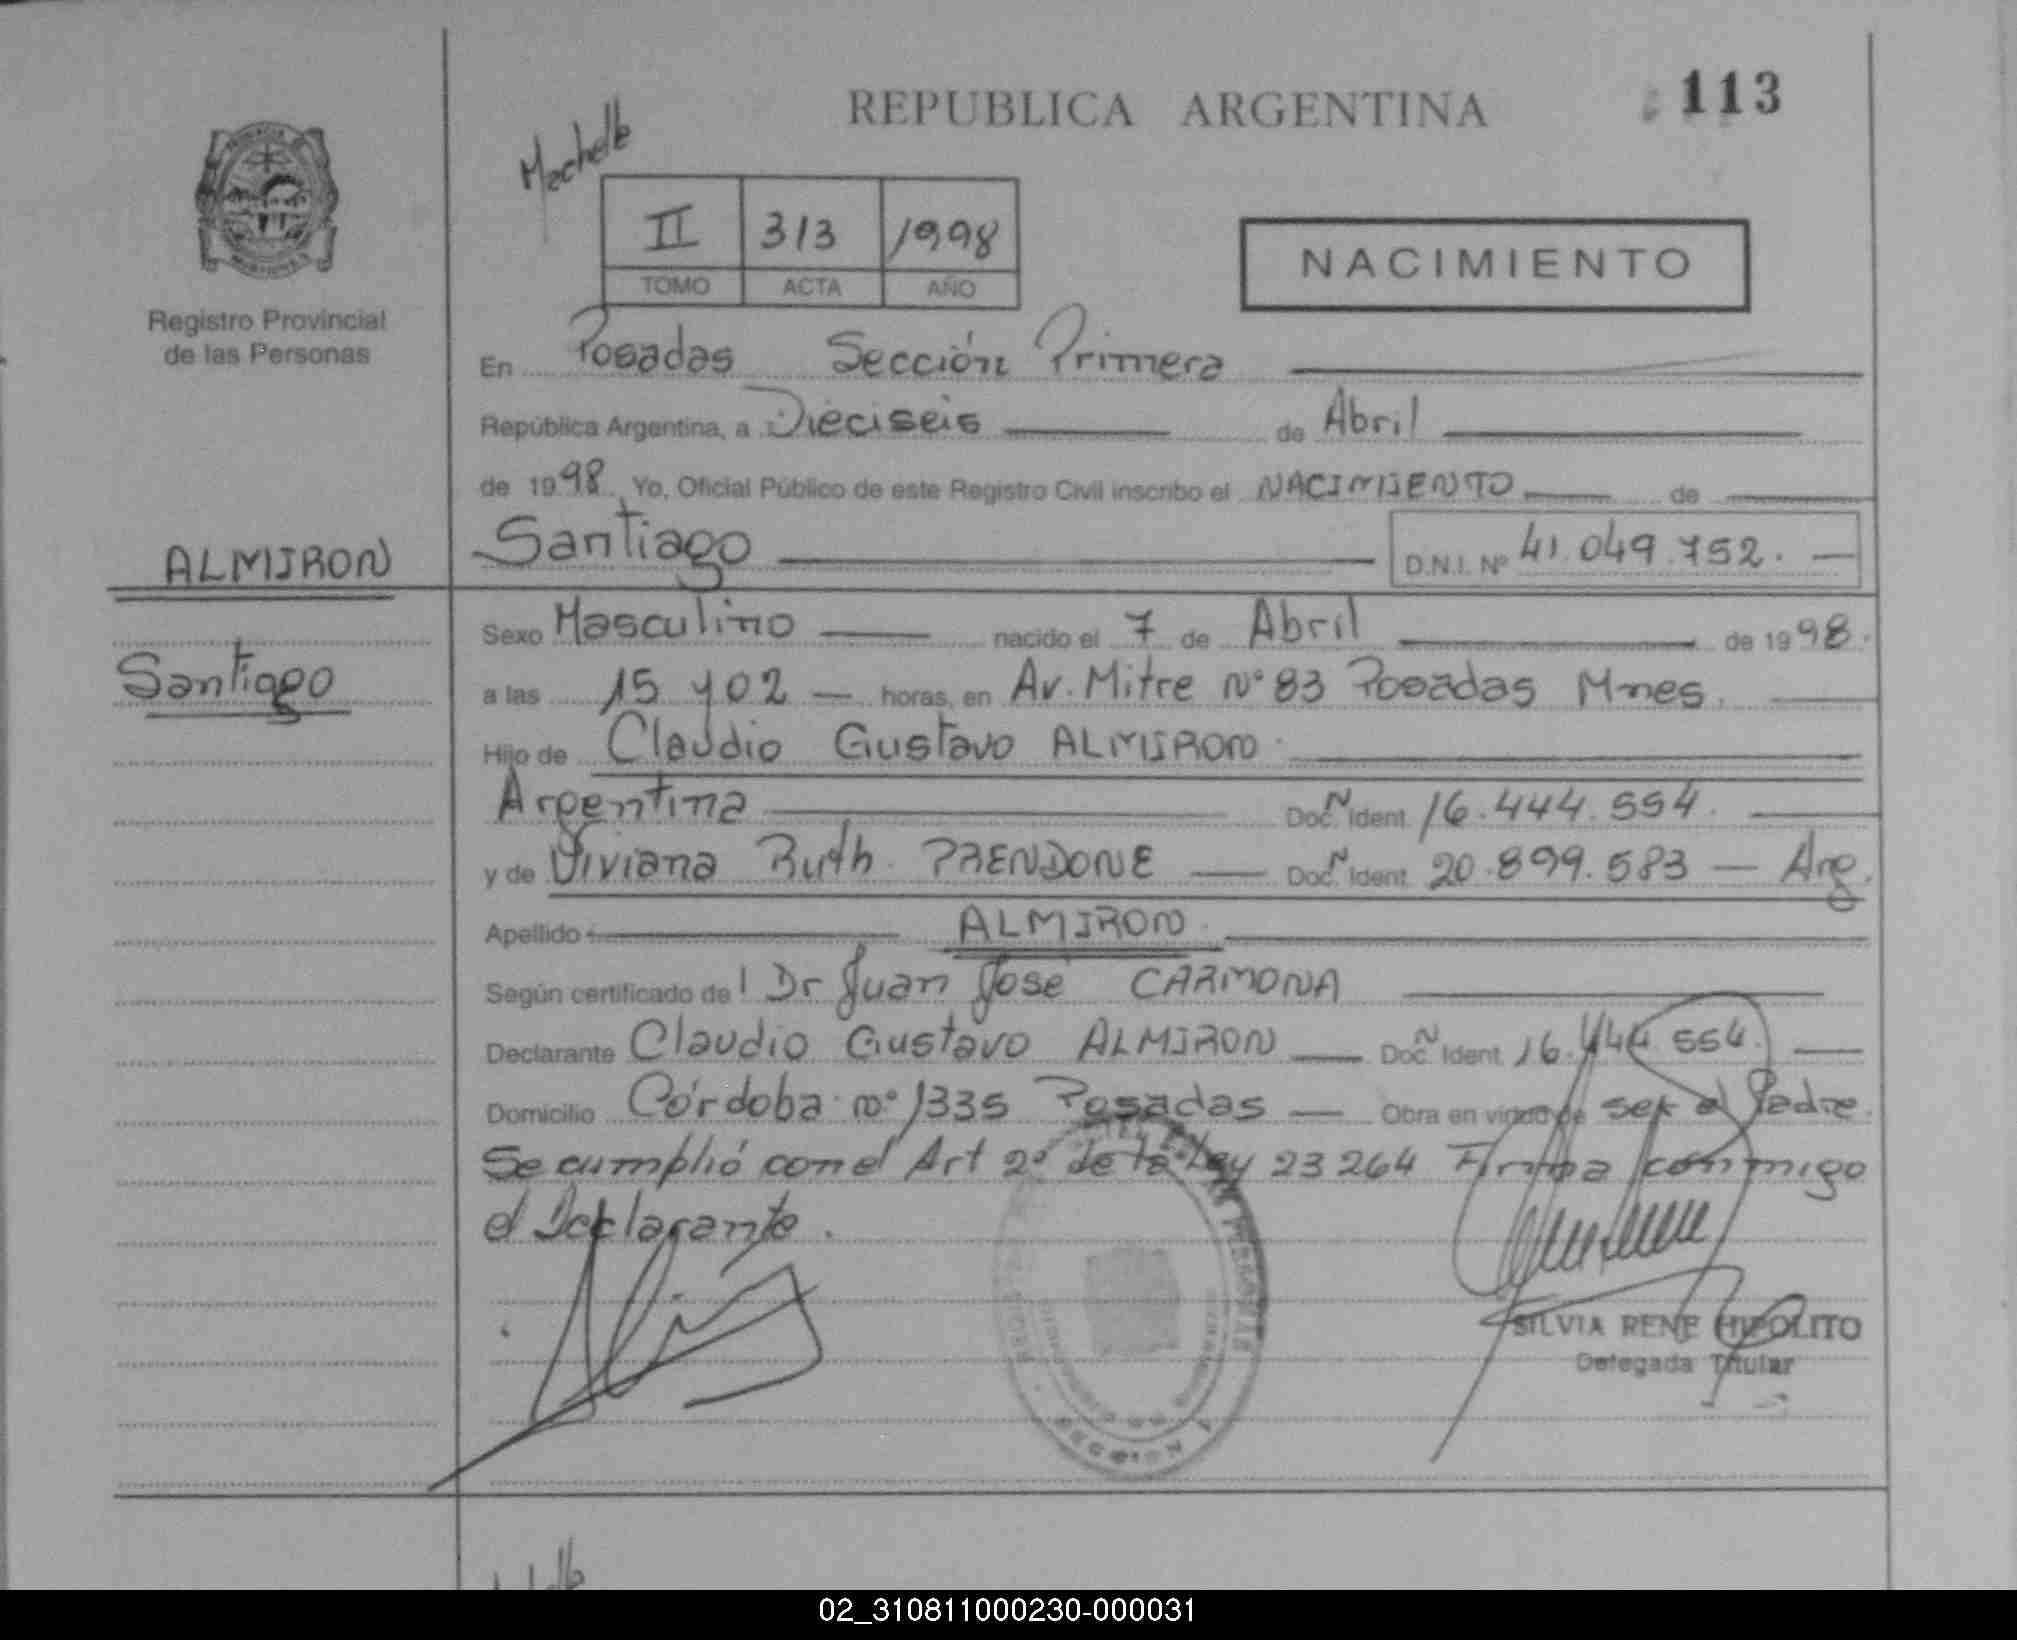 REPUBLICA ARGENTINA
113
II 313 1998
TOMO ACTA AÑO
NACIMIENTO
Registro Provincial
de las Personas
En Posadas Sección Primera
República Argentina, a Dieciseis de Abril
de 1998. Yo, Oficial Público de este Registro Civil inscribo el NACIMIENTO de
ALMIRON
Santiago
Santiago D.N.I. Nº 41.049.752.
Sexo Masculino nacido el 7 de Abril de 1998.
a las 15 y 02 horas, en Av. Mitre Nº 83 Posadas Mnes.
Hijo de Claudio Gustavo ALMIRON
Argentina Doc. N Ident. 16.444.554.
y de Viviana Ruth PRENDONE Doc. N Ident. 20.899.583 Arg.
Apellido ALMIRON
Según certificado del Dr Juan José CARMONA
Declarante Claudio Gustavo ALMIRON Doc. N Ident. 16.444.554.
Domicilio Córdoba nº 1335 Posadas Obra en virtud de ser el Padre
Se cumplió con el Art 2º de la Ley 23264 Firma conmigo
el Declarante.
SILVIA RENE HIPOLITO
Delegada Titular
02_310811000230-000031